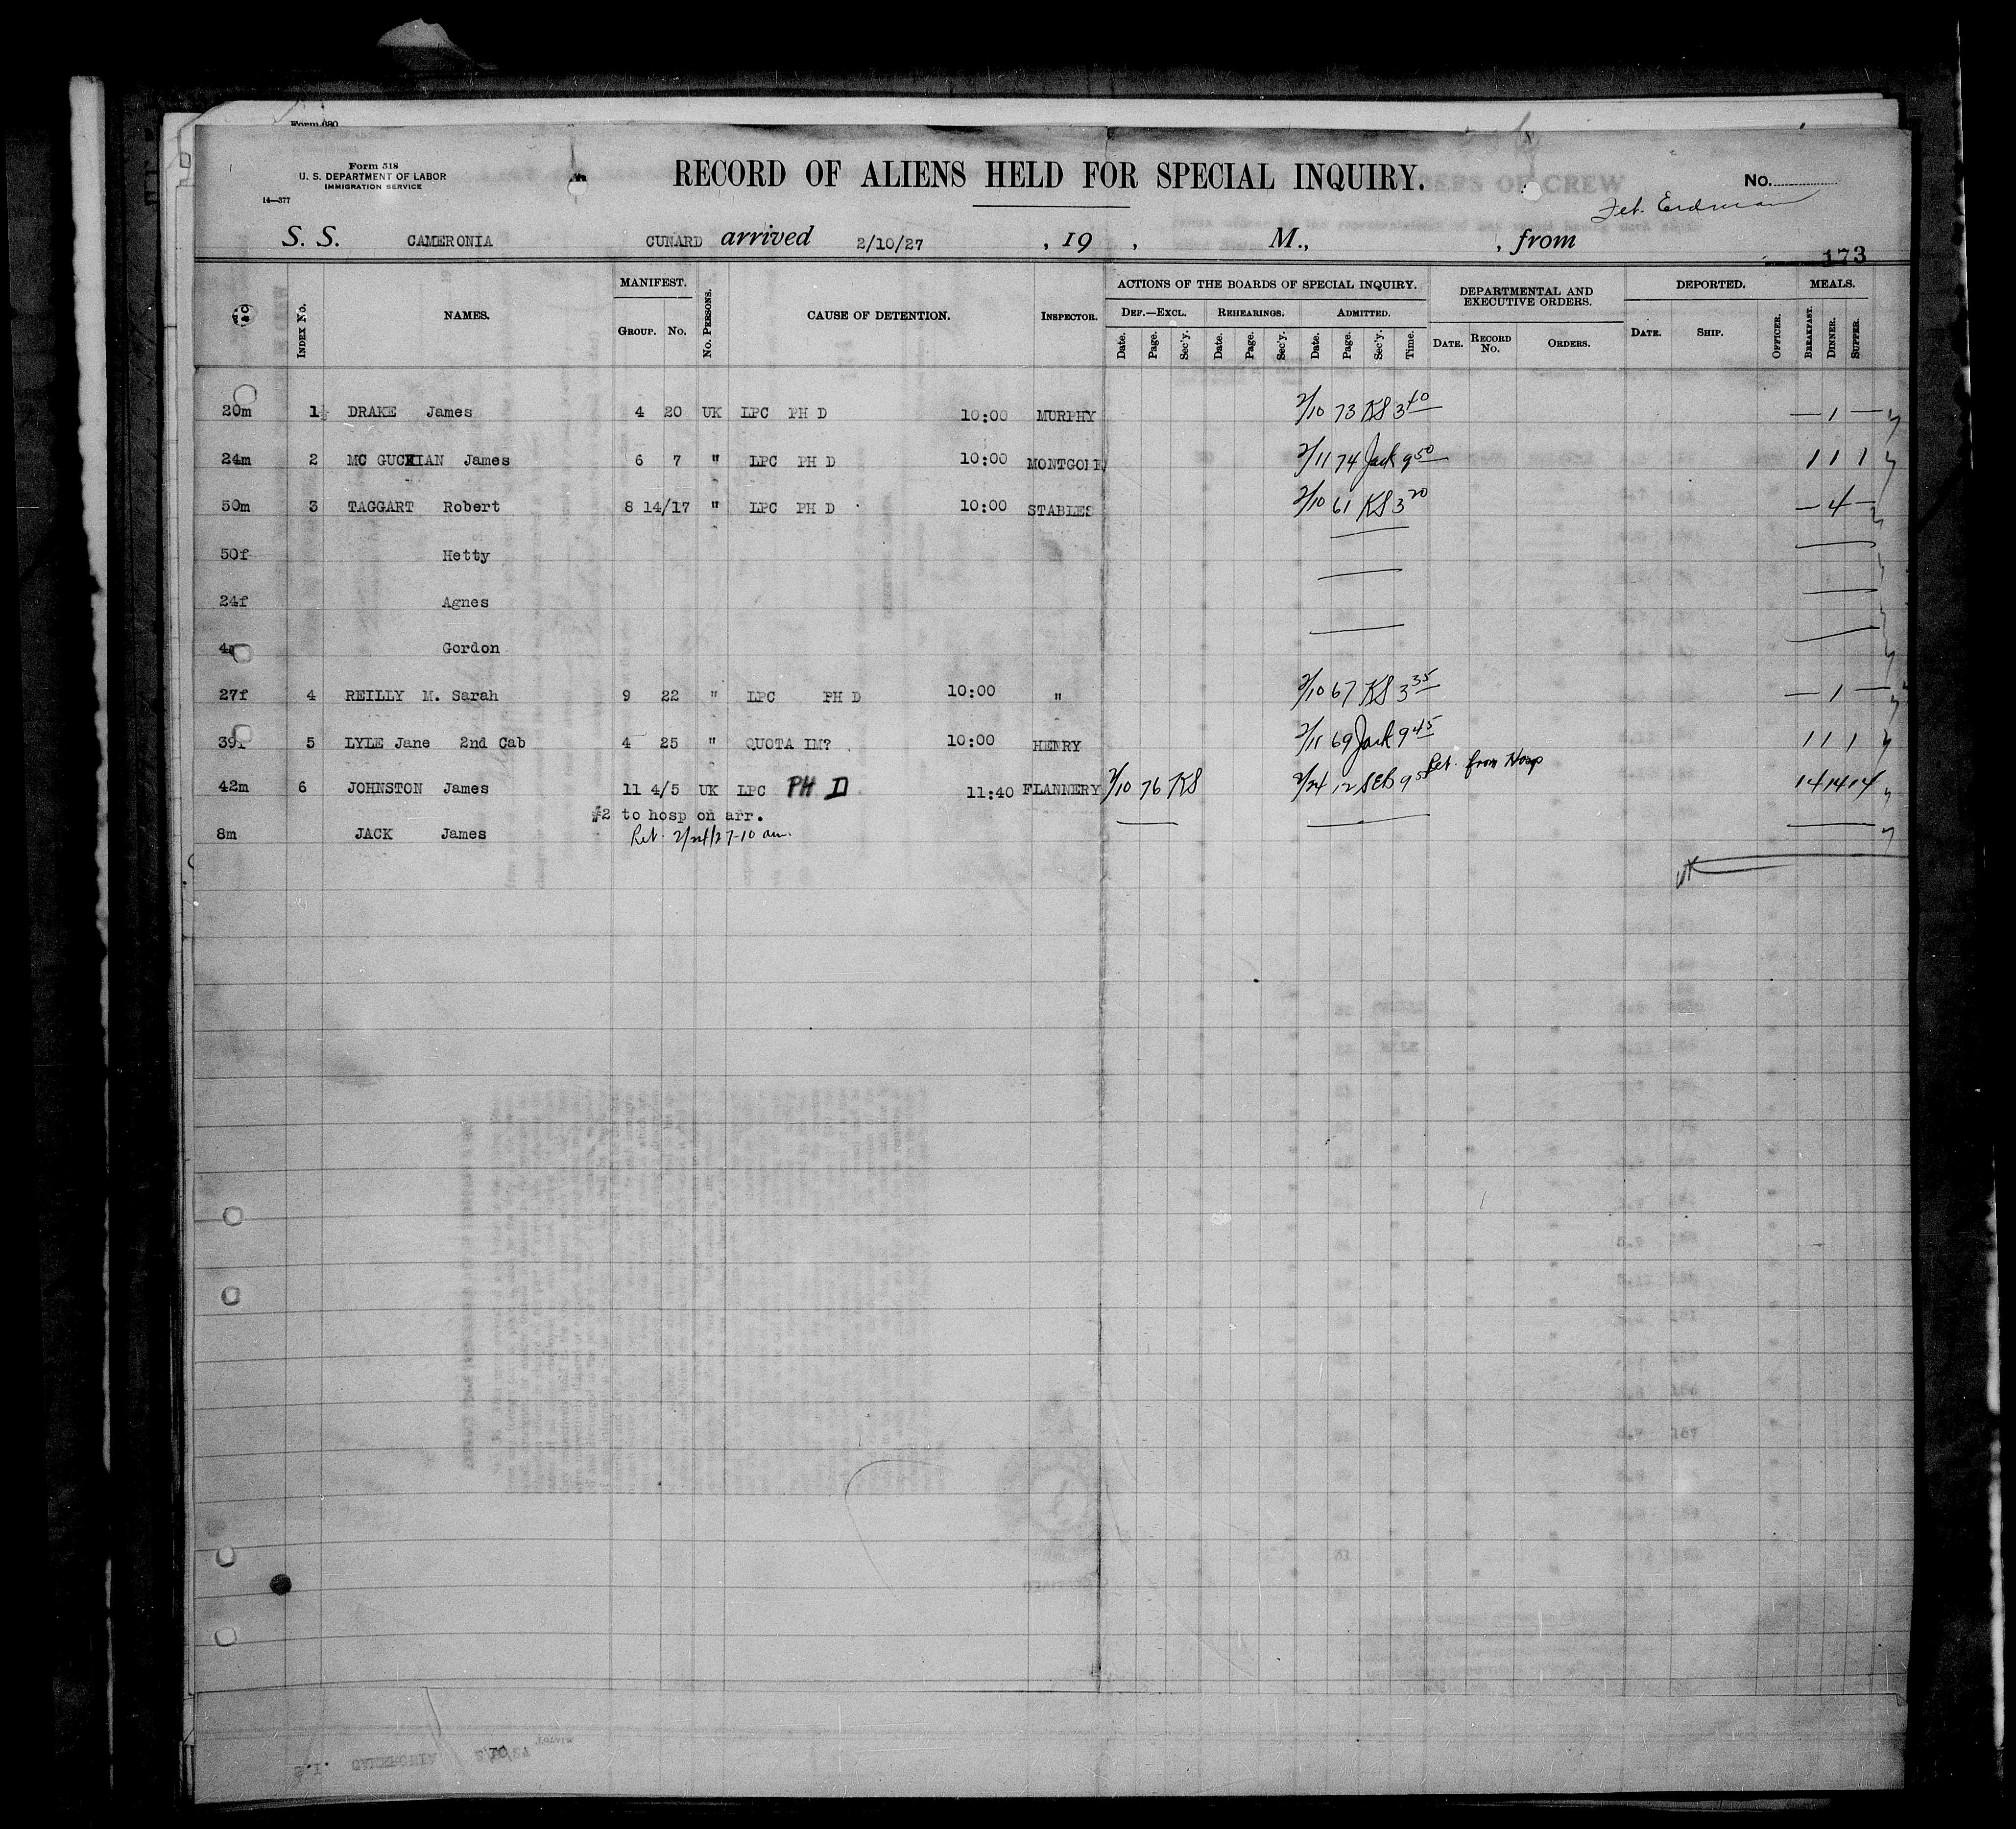 Form 630
Form 518
U. S. DEPARTMENT OF LABOR
IMMIGRATION SERVICE
14—377
RECORD OF ALIENS HELD FOR SPECIAL INQUIRY.
No.
Erdman
S. S. CAMERONIA CUNARD arrived 2/10/27 , 19 , M., , from
173
INDEX No. NAMES. MANIFEST. GROUP. No. No. PERSONS. CAUSE OF DETENTION. INSPECTOR. ACTIONS OF THE BOARDS OF SPECIAL INQUIRY. DEPARTMENTAL AND EXECUTIVE ORDERS. DEPORTED. MEALS.
DEF.—EXCL. REHEARINGS. ADMITTED.
Date. Page. Sec'y. Date. Page. Sec'y. Date. Page. Sec'y. Time. DATE. RECORD No. ORDERS. DATE. SHIP. OFFICER. BREAKFAST. DINNER. SUPPER.
20m 1 DRAKE James 4 20 UK LPC PH D 10:00 MURPHY 2/10 73 KS 3 40 — 1 —
24m 2 MC GUCKIAN James 6 7 " LPC PH D 10:00 MONTGOM 2/11 74 Jack 9 50 1 1 1
50m 3 TAGGART Robert 8 14/17 " LPC PH D 10:00 STABLES 2/10 61 KS 3 20 — 4 —
50f Hetty
24f Agnes
4m Gordon
27f 4 REILLY M. Sarah 9 22 " LPC PH D 10:00 " 2/10 67 KS 3 35 — 1 —
39f 5 LYLE Jane 2nd Cab 4 25 " QUOTA IM? 10:00 HENRY 2/11 69 Jack 9 45 1 1 1
Ret. from Hosp
42m 6 JOHNSTON James 11 4/5 UK LPC PH D 11:40 FLANNERY 2/10 76 KS 2/24 12 SEB 9 50 14 14 14
#2 to hosp on arr.
8m JACK James Ret. 2/24/27-10 am.
S.I. CAMERONIA 2/10/27